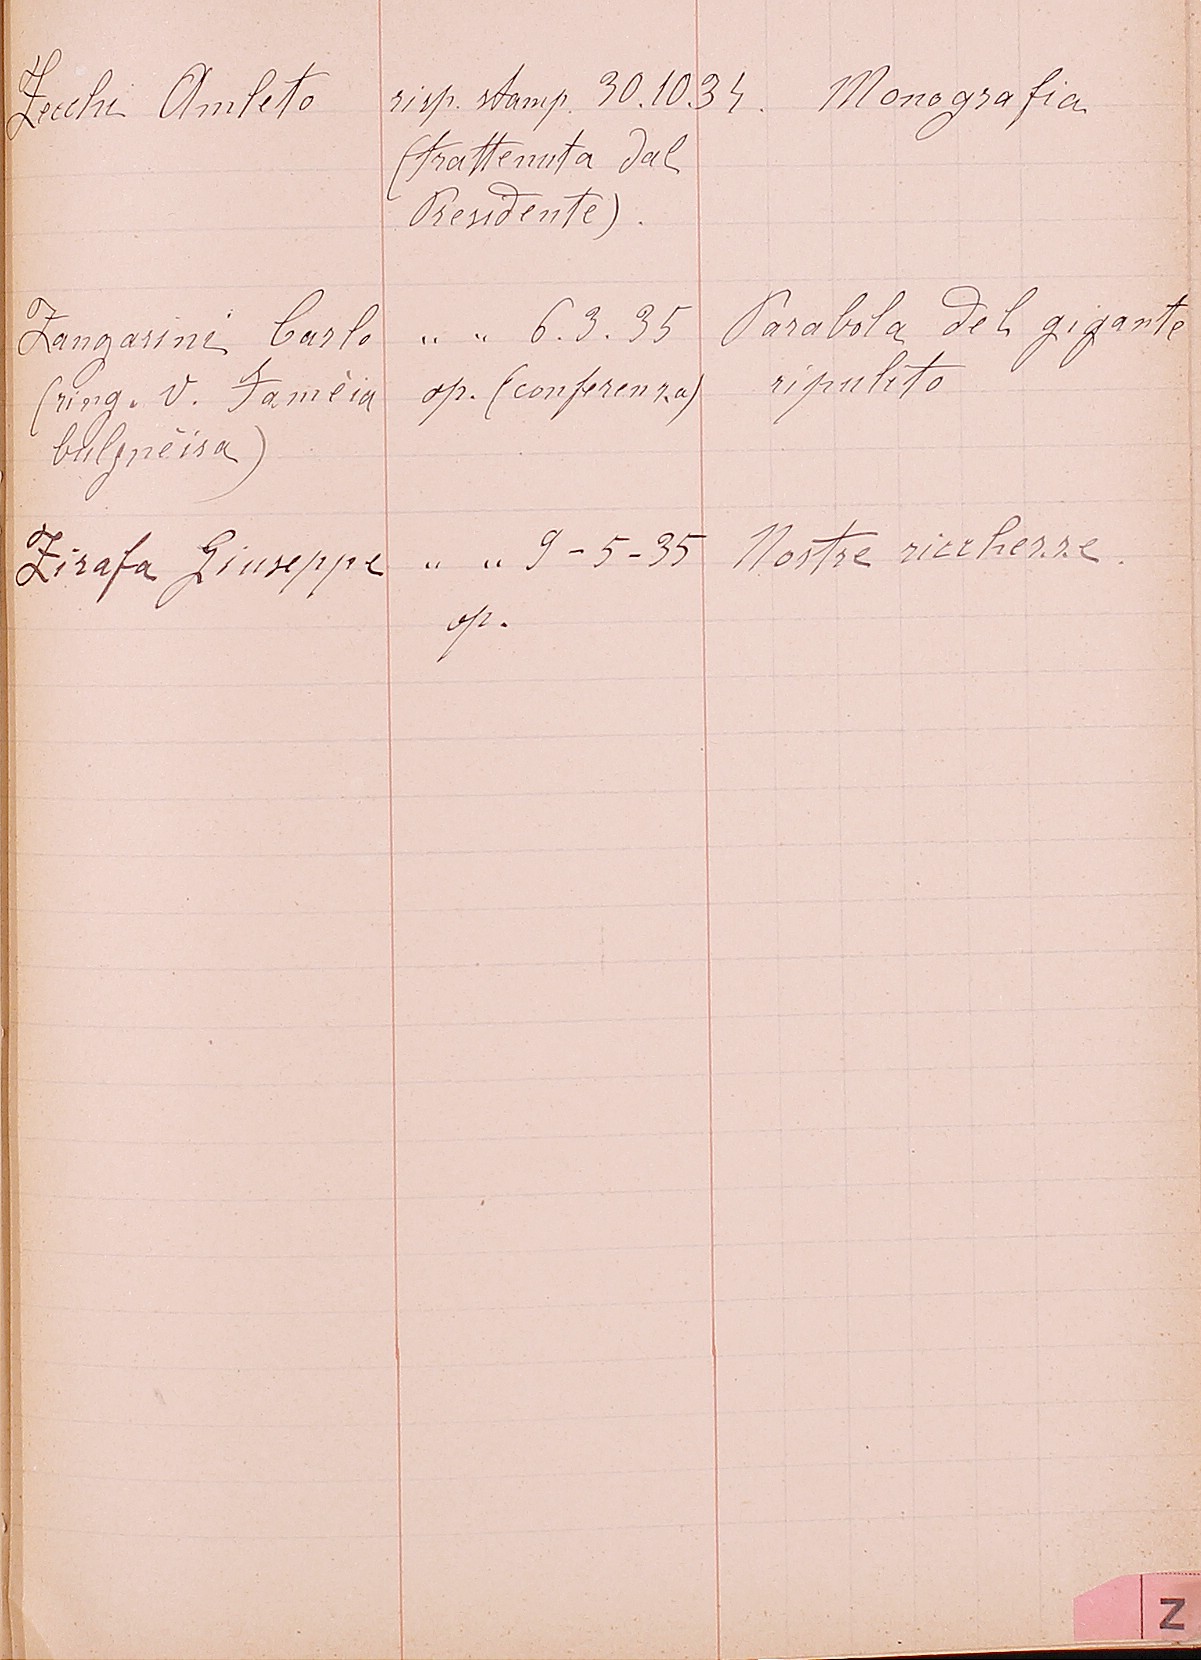 Zecchi Amleto risp. stamp. 30.10.34. Monografia
(trattenuta dal
Presidente).
Zangarini Carlo " " 6.3.35 Parabola del gigante
(ring. v. Famèia op. (conferenza) ripulito
bulgnèisa)
Zirafa Giuseppe " " 9-5-35 Nostre ricchezze.
op.
Z